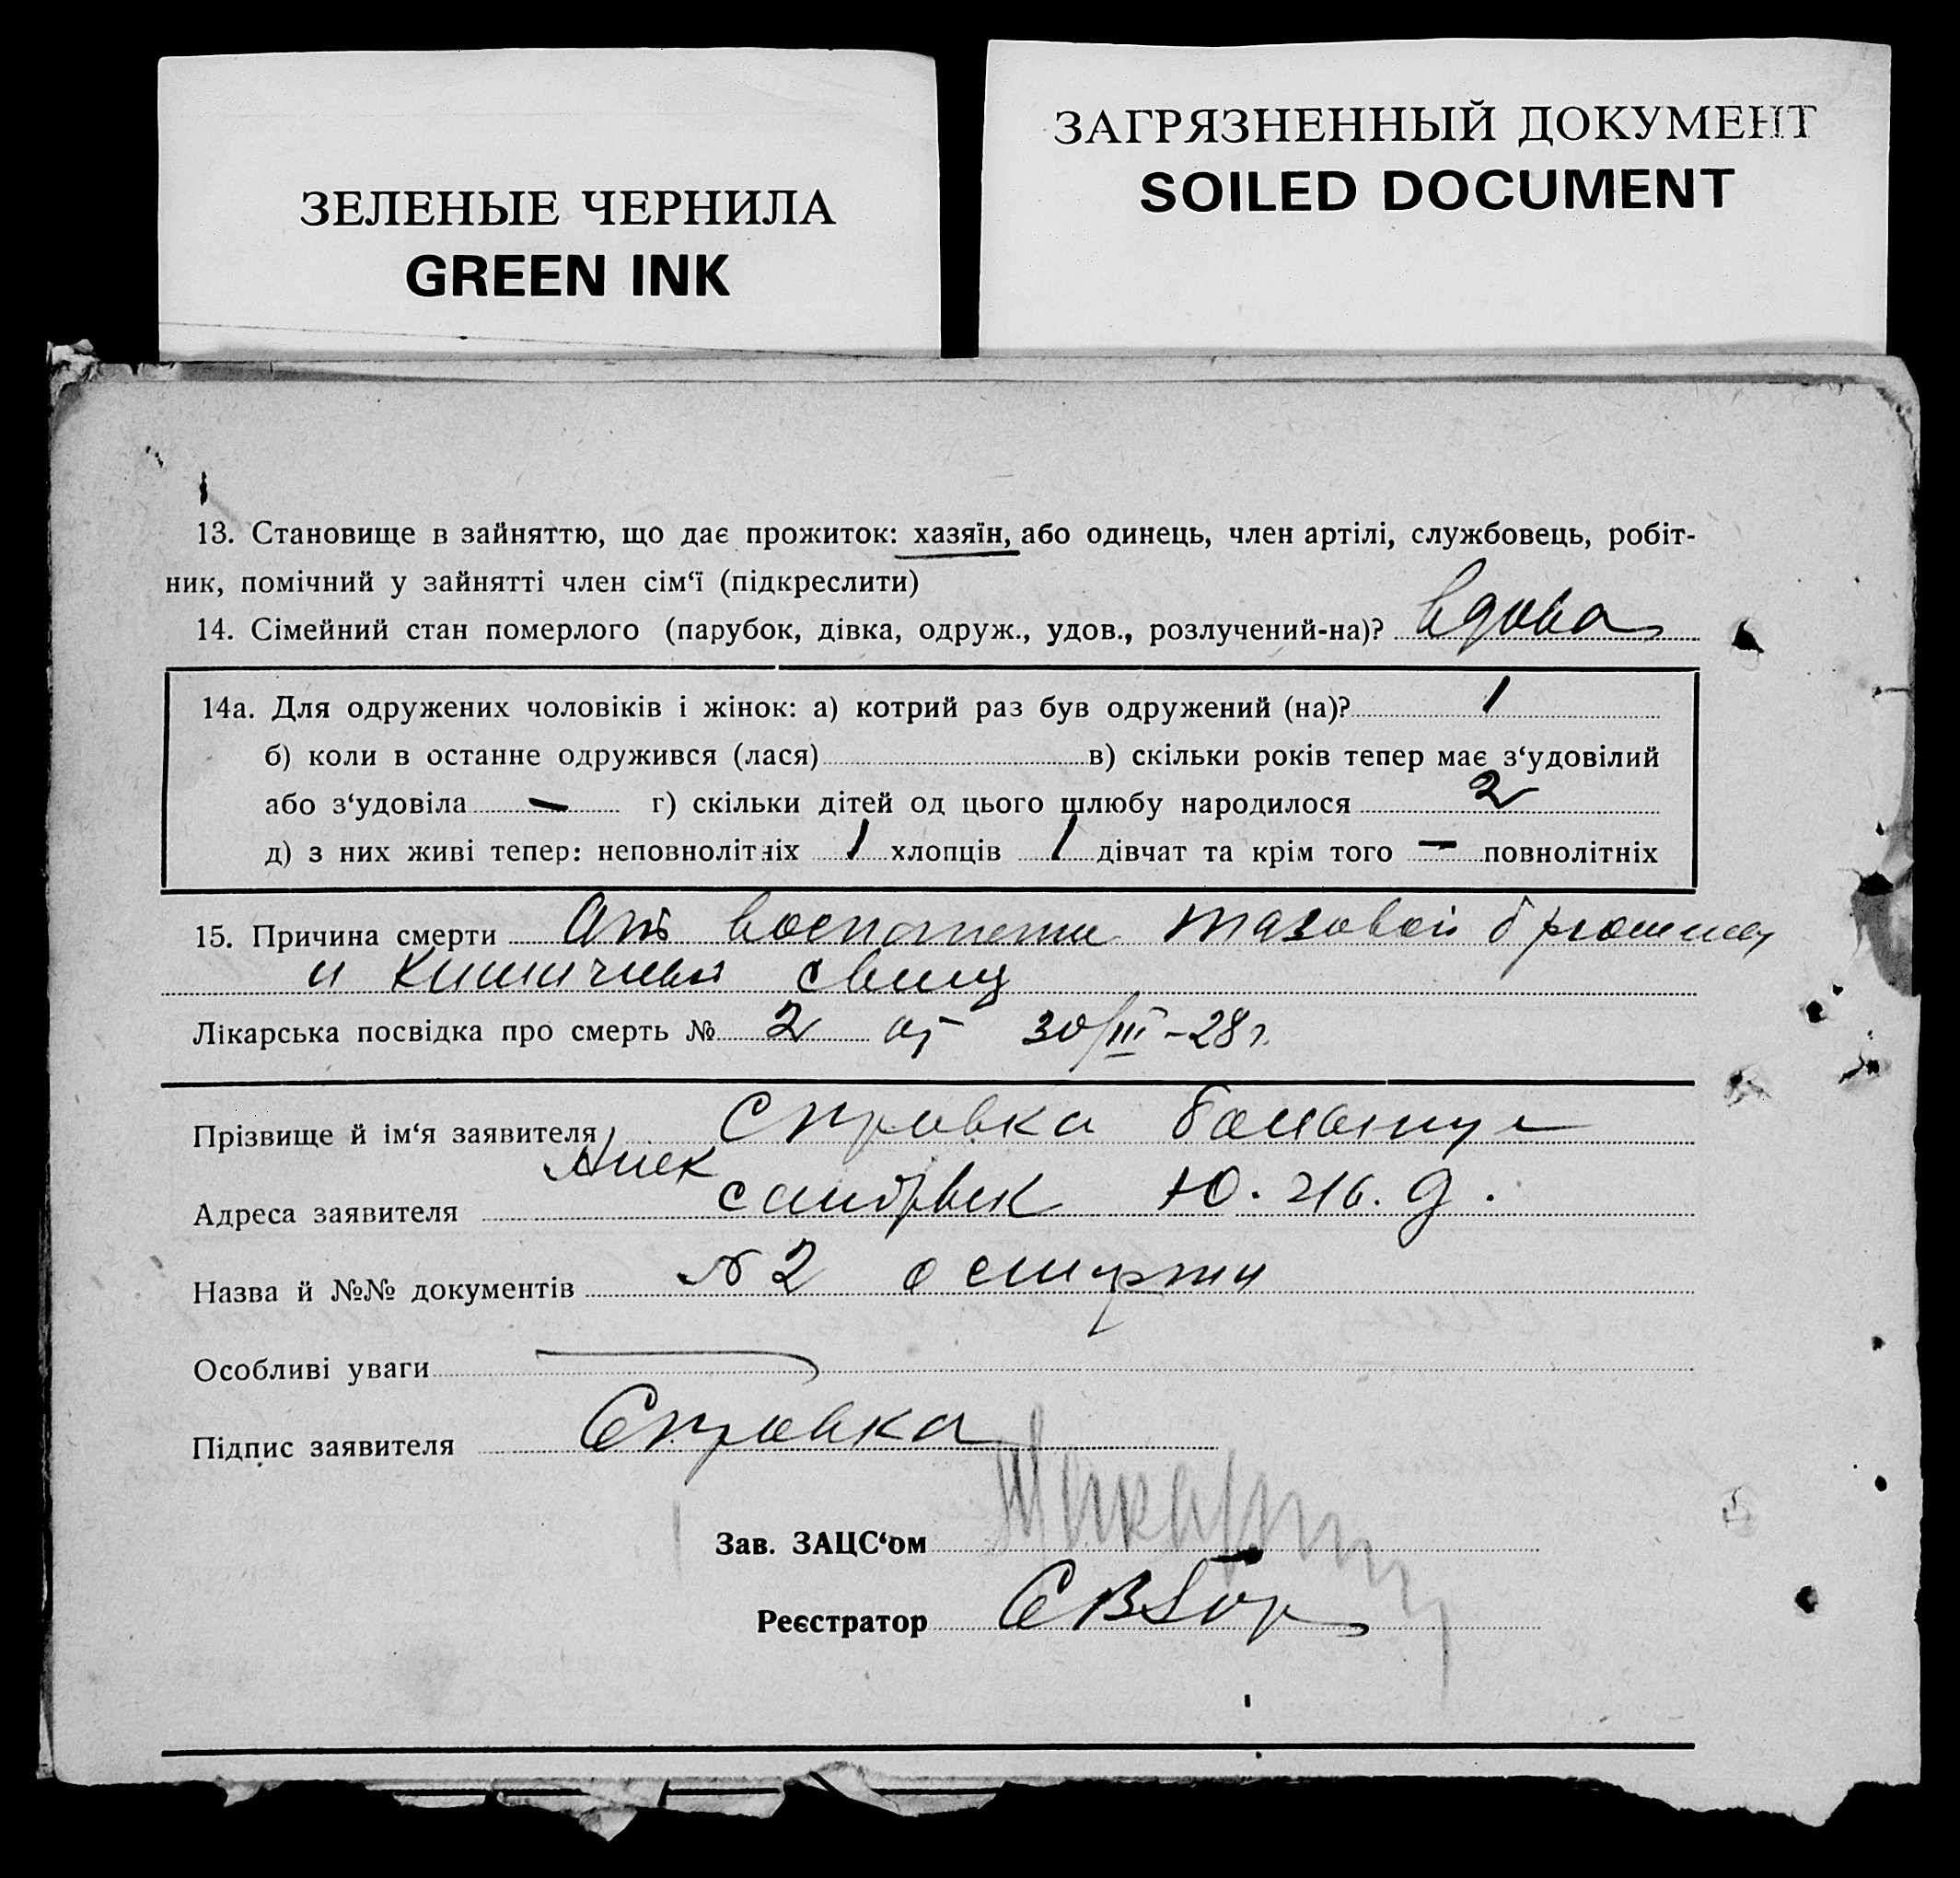 ЗЕЛЕНЫЕ ЧЕРНИЛА
GREEN INK
ЗАГРЯЗНЕННЫЙ ДОКУМЕНТ
SOILED DOCUMENT
13. Становище в зайняттю, що дає прожиток: хазяїн, або одинець, член артілі, службовець, робіт-
ник, помічний у зайнятті член сім‘ї (підкреслити)
14. Сімейний стан померлого (парубок, дівка, одруж., удов., розлучений-на)? вдова
14а. Для одружених чоловіків і жінок: а) котрий раз був одружений (на)? 1
б) коли в останне одружився (лася) в) скільки років тепер має з‘удовілий
або з‘удовіла — г) скільки дітей од цього шлюбу народилося 2
д) з них живі тепер: неповнолітніх 1 хлопців 1 дівчат та крім того — повнолітніх
15. Причина смерти тазовой
и свищ
Лікарська посвідка про смерть № 2 от 30/III-28 г.
Прізвище й ім‘я заявителя Справка
Адреса заявителя Ю. д.
Назва й №№ документів № 2 о смерти
Особливі уваги
Підпис заявителя Справка
Зав. ЗАЦС‘ом
Реєстратор